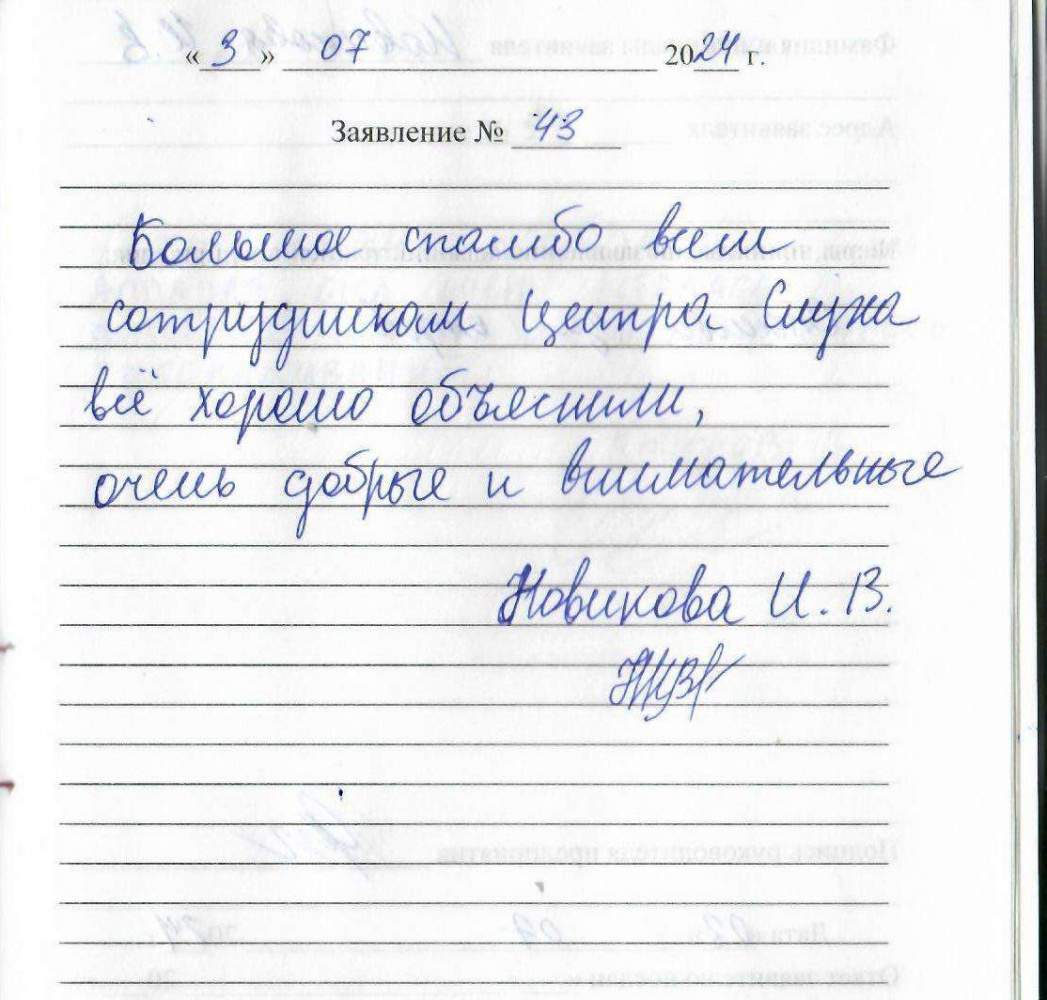 « 3 » 07 2024 г.
Заявление № 43
Большое спасибо всем
сотрудникам Центра Слуха
всё хорошо объяснили,
очень добрые и внимательные
Новикова И. В.